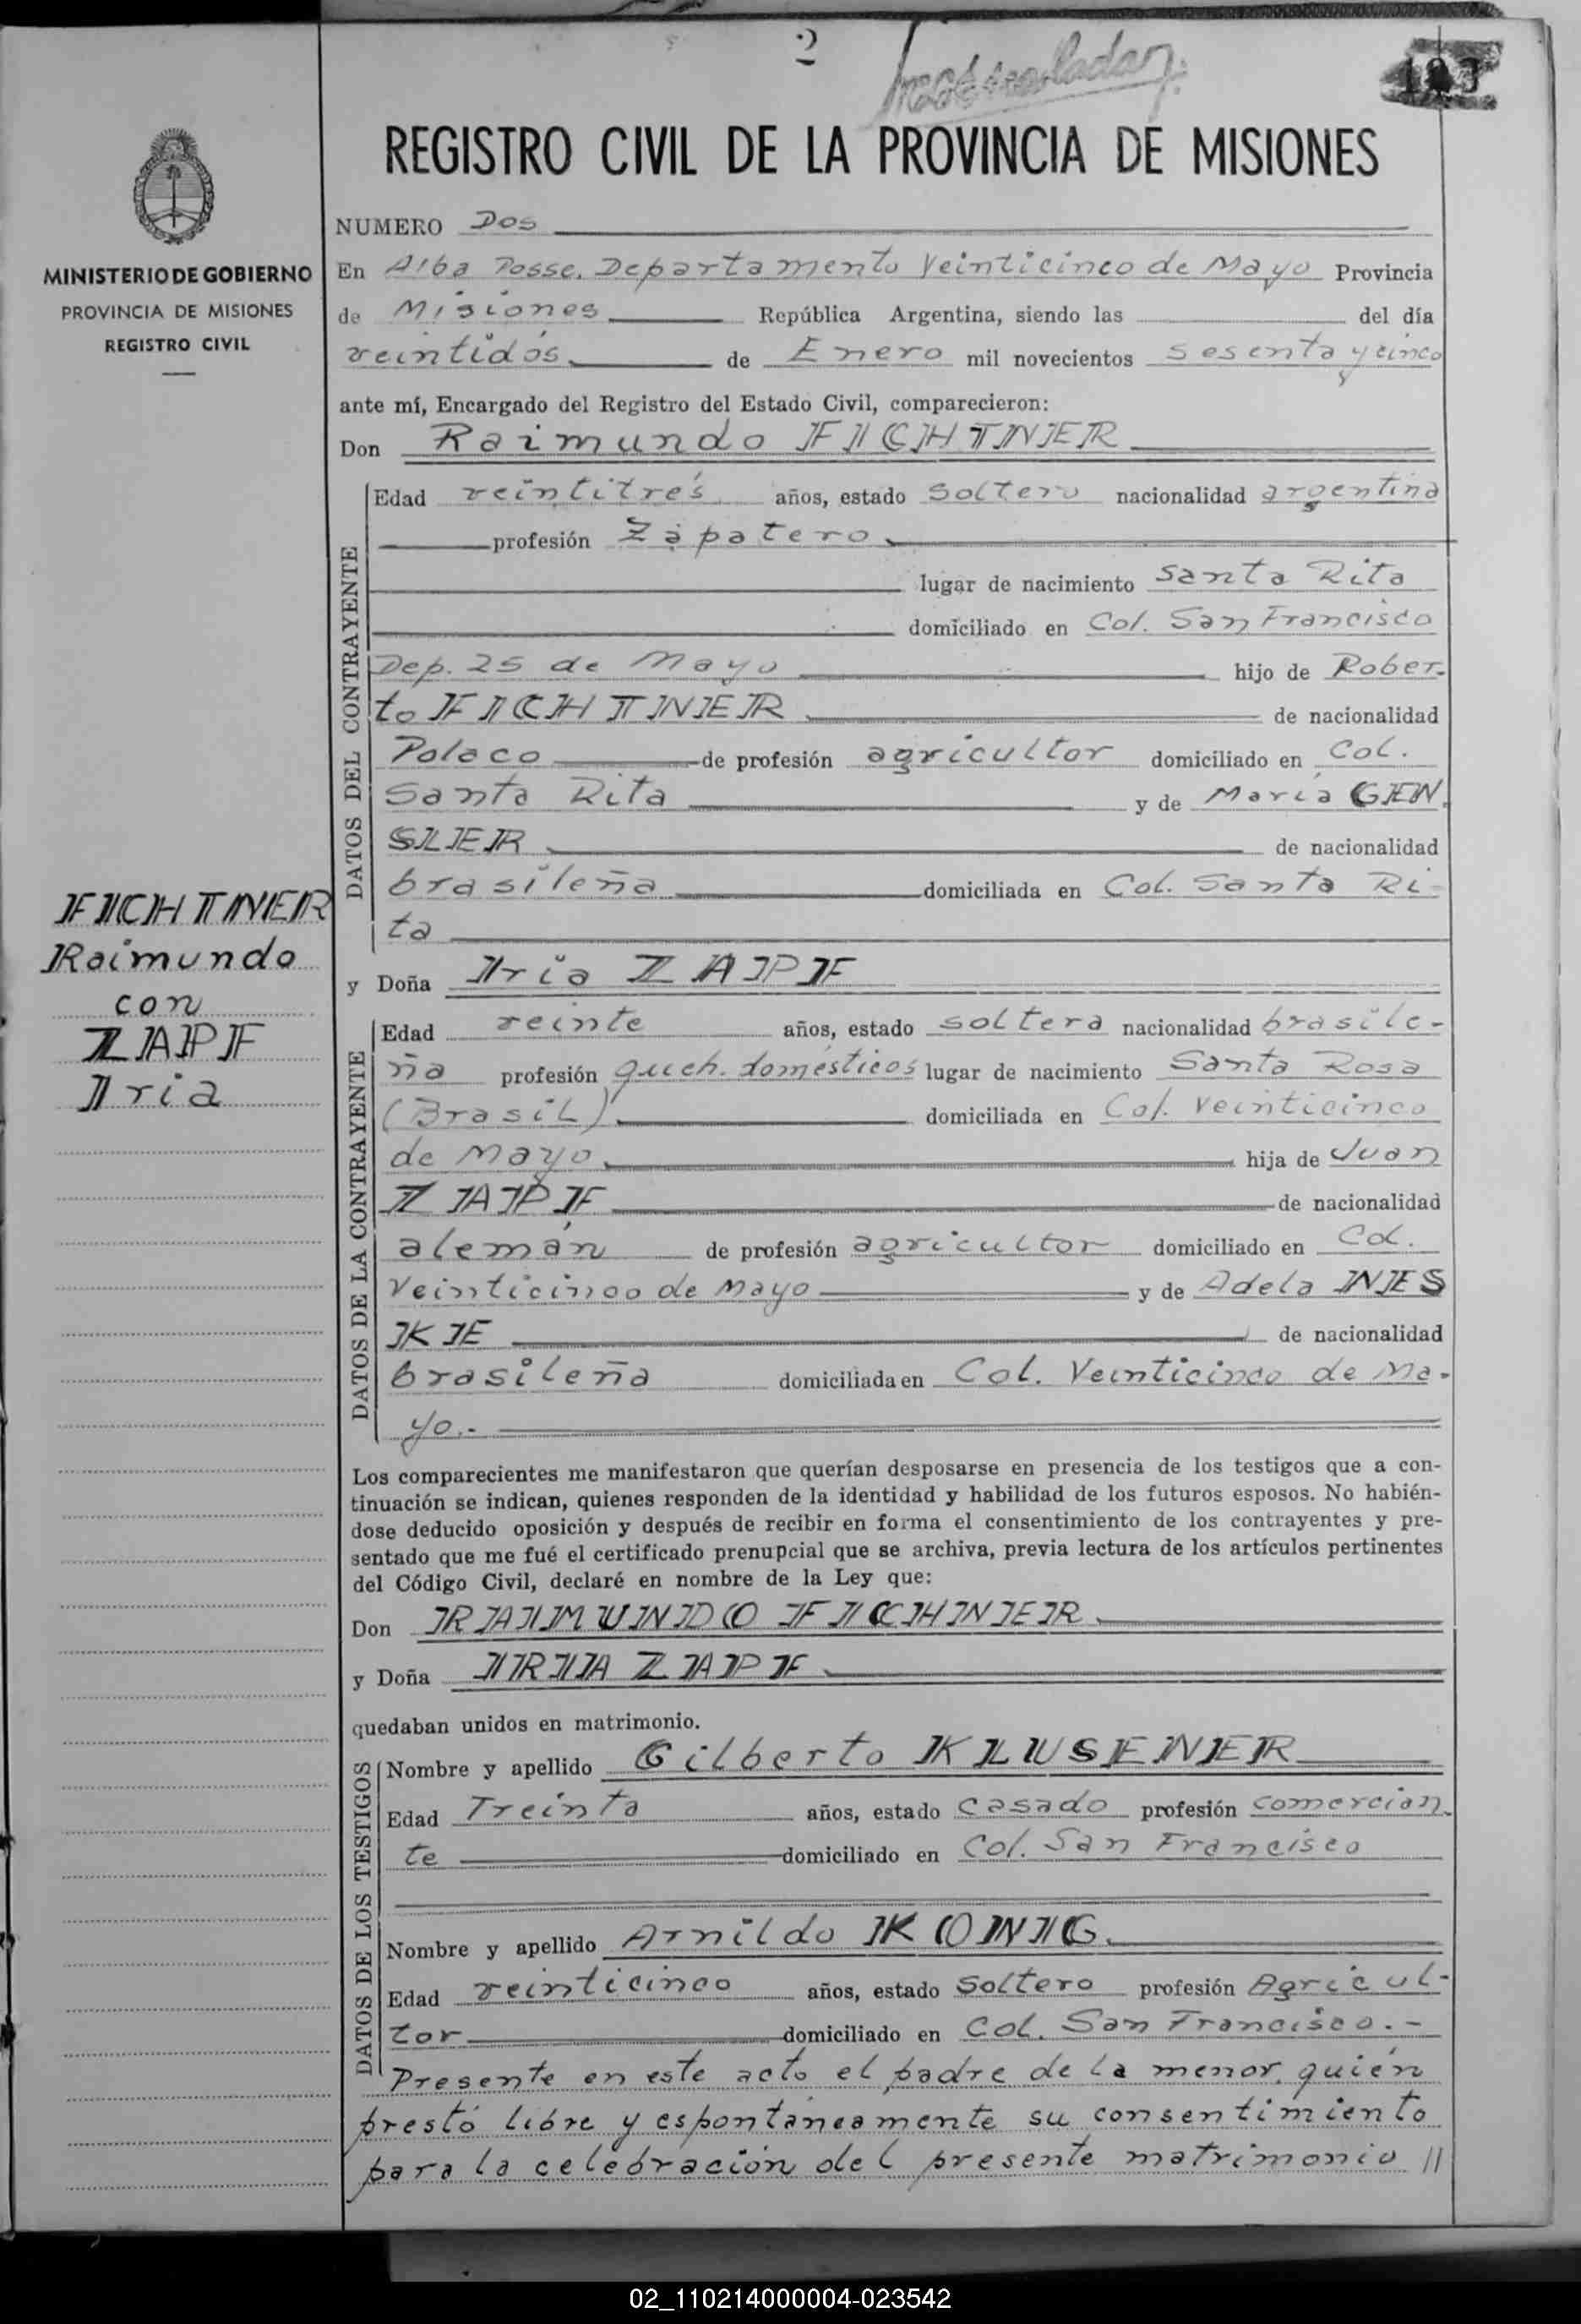 2
103
REGISTRO CIVIL DE LA PROVINCIA DE MISIONES
MINISTERIO DE GOBIERNO
PROVINCIA DE MISIONES
REGISTRO CIVIL
NUMERO Dos
En Alba Posse, Departamento Veinticinco de Mayo Provincia
de Misiones República Argentina, siendo las del día
veintidós de Enero mil novecientos sesenta y cinco
ante mí, Encargado del Registro del Estado Civil, comparecieron:
Don Raimundo FICHTNER
DATOS DEL CONTRAYENTE
Edad veintitrés años, estado soltero nacionalidad argentina
profesión Zapatero
lugar de nacimiento Santa Rita
domiciliado en Col. San Francisco
Dep. 25 de Mayo hijo de Rober-
to FICHTNER de nacionalidad
Polaco de profesión agricultor domiciliado en Col.
Santa Rita y de María GEN
SLER de nacionalidad
brasileña domiciliada en Col. Santa Ri-
ta
FICHTNER
Raimundo
con
ZAPF
Iria
y Doña Iria ZAPF
DATOS DE LA CONTRAYENTE
Edad veinte años, estado soltera nacionalidad brasile-
ña profesión queh. domésticos lugar de nacimiento Santa Rosa
(Brasil) domiciliada en Col. Veinticinco
de Mayo hija de Juan
ZAPF de nacionalidad
alemán de profesión agricultor domiciliado en Col.
Veinticinco de Mayo y de Adela NES
KE de nacionalidad
brasileña domiciliada en Col. Veinticinco de Ma-
yo.-
Los comparecientes me manifestaron que querían desposarse en presencia de los testigos que a con-
tinuación se indican, quienes responden de la identidad y habilidad de los futuros esposos. No habién-
dose deducido oposición y después de recibir en forma el consentimiento de los contrayentes y pre-
sentado que me fué el certificado prenupcial que se archiva, previa lectura de los artículos pertinentes
del Código Civil, declaré en nombre de la Ley que:
Don RAIMUNDO FICHNER
y Doña IRIA ZAPF
quedaban unidos en matrimonio.
DATOS DE LOS TESTIGOS
Nombre y apellido Gilberto KLUSENER
Edad Treinta años, estado casado profesión comercian
te domiciliado en Col. San Francisco
Nombre y apellido Arnildo KONIG
Edad veinticinco años, estado soltero profesión Agricul-
tor domiciliado en Col. San Francisco.-
Presente en este acto el padre de la menor, quién
prestó libre y espontáneamente su consentimiento
para la celebración del presente matrimonio //
02_110214000004-023542